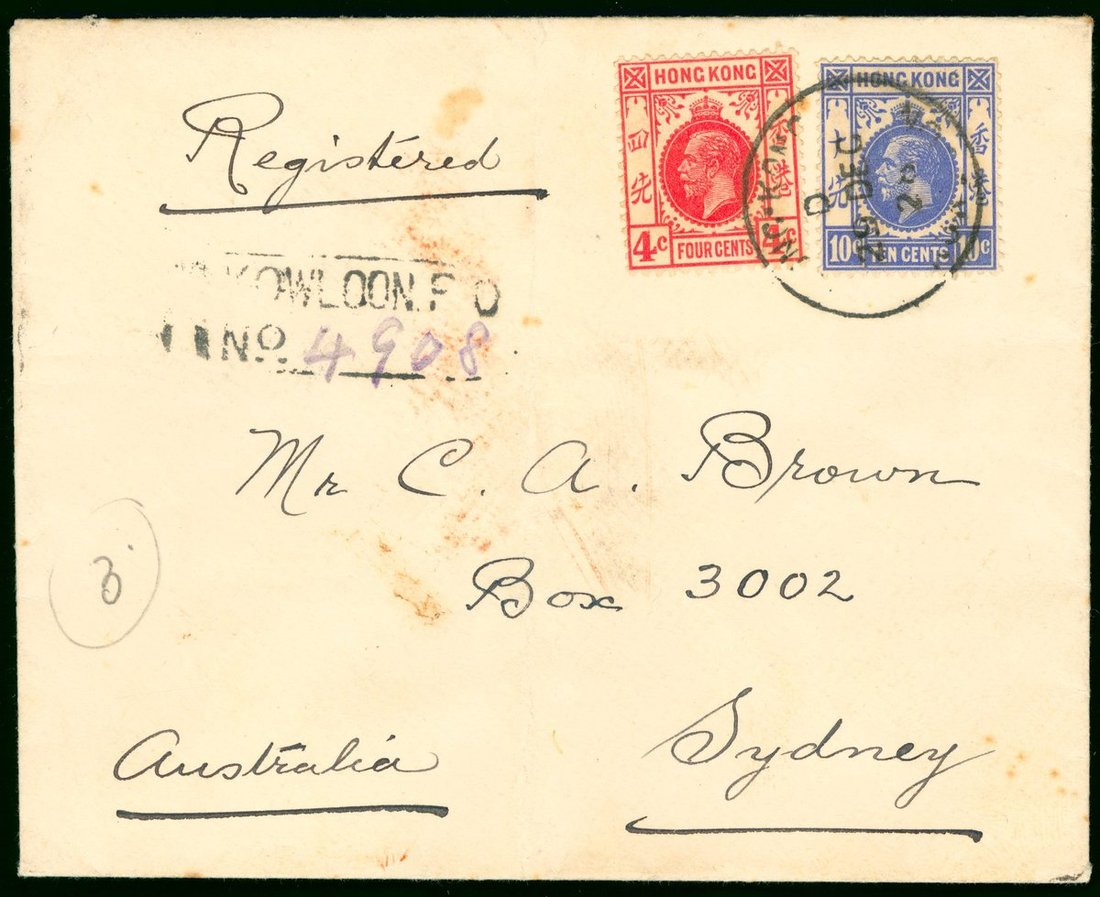 Registered
HONG KONG
四先
香港
4c
FOUR CENTS
4c
HONG KONG
十先
香港
10c
TEN CENTS
10c
D
25 DEC
KOWLOON.P O
No. 4908
Mr C. A. Brown
Box 3002
Sydney
Australia
3